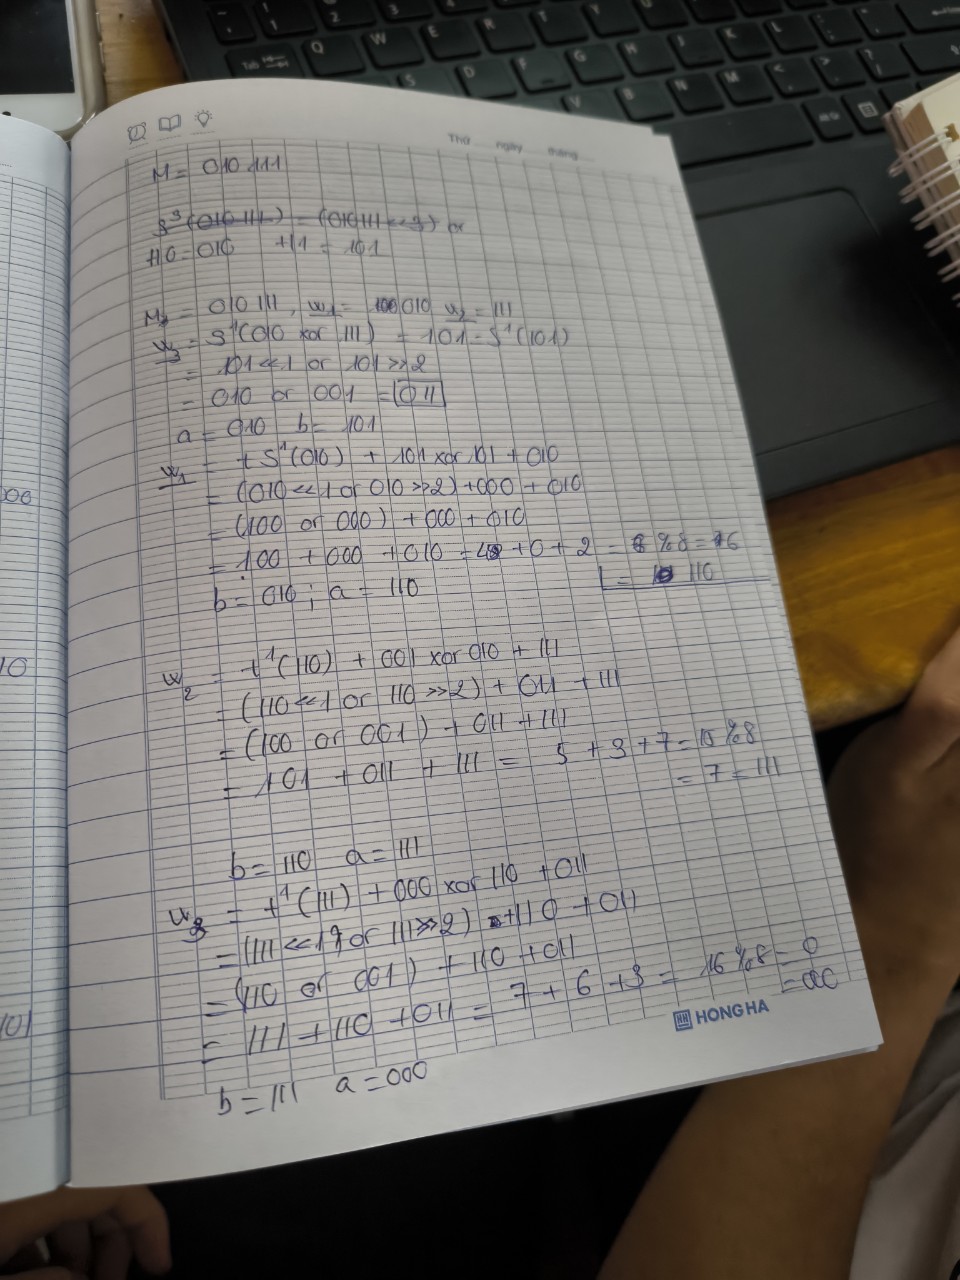 Thứ ngày tháng
M = 010 111
S³(010 111) = (010111 << 3) or
H0 = 010 H1 = 101
M = 010 111, w1 = 010 w2 = 111
w3 = S¹(010 xor 111) = 101 = S¹(101)
= 101 << 1 or 101 >> 2
= 010 or 001 = 011
a = 010 b = 101
w1 = t S¹(010) + 101 xor 101 + 010
= (010 << 1 or 010 >> 2) + 000 + 010
= (100 or 000) + 000 + 010
= 100 + 000 + 010 = 4 + 0 + 2 = 6 % 8 = 6
= 110
b = 010 ; a = 110
w2 = t¹(110) + 001 xor 010 + 111
= (110 << 1 or 110 >> 2) + 011 + 111
= (100 or 001) + 011 + 111
= 101 + 011 + 111 = 5 + 3 + 7 = 15 % 8
= 7 = 111
b = 110 a = 111
w3 = t¹(111) + 000 xor 110 + 011
= (111 << 1 or 111 >> 2) + 110 + 011
= (110 or 001) + 110 + 011
= 111 + 110 + 011 = 7 + 6 + 3 = 16 % 8 = 0
= 000
b = 111 a = 000
HH HONG HA
000
10
101
Tab
Q
W
E
R
T
Y
U
I
O
P
S
D
F
G
H
J
K
L
V
B
N
M